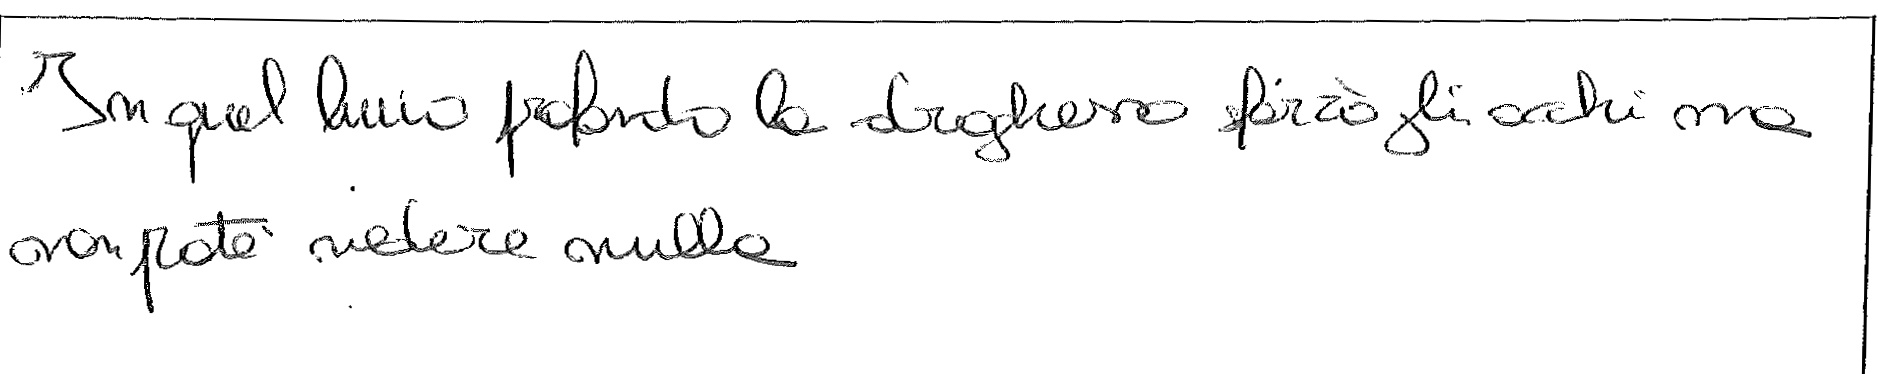 In quel buio profondo la draghessa forzò gli occhi ma
non potè vedere nulla